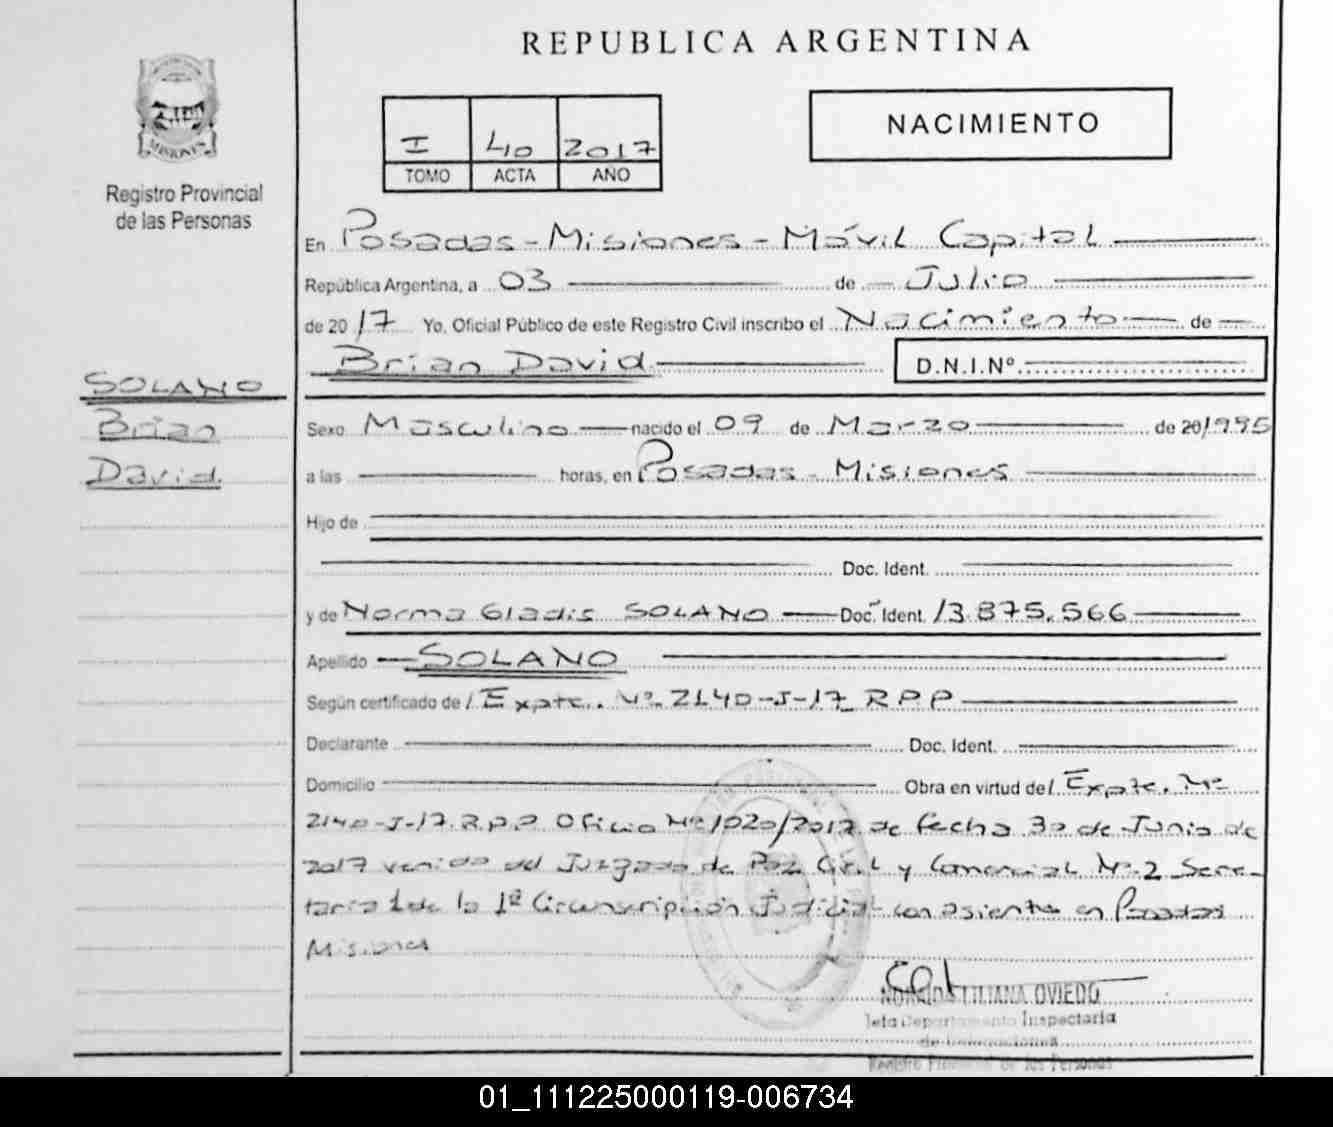 REPUBLICA ARGENTINA
MISIONES
Registro Provincial
de las Personas
I 40 2017
TOMO ACTA AÑO
NACIMIENTO
En Posadas - Misiones - Móvil Capital
República Argentina, a 03 de Julio
de 2017 Yo, Oficial Público de este Registro Civil inscribo el Nacimiento de
Brian David D.N.I.Nº
SOLANO
Brian
David
Sexo Masculino nacido el 09 de Marzo de 20/1995
a las horas, en Posadas - Misiones
Hijo de
Doc. Ident.
y de Norma Gladis SOLANO Doc. Ident. 13.875.566
Apellido SOLANO
Según certificado de/ Expte. Nº. 2140-J-17 R P P
Declarante Doc. Ident.
Domicilio Obra en virtud de/ Expte. Nº
2140-J-17. R.P.P Oficio Nº 1020/2017 de fecha 30 de Junio de
2017 venido del Juzgado de Paz Civil y Comercial Nº 2 Secre-
taria 1 de la 1ª Circunscripción Judicial con asiento en Posadas
Misiones
NORMA LILIANA OVIEDO
Jefa Departamento Inspectoría
de Delegaciones
Registro Provincial de las Personas
01_111225000119-006734